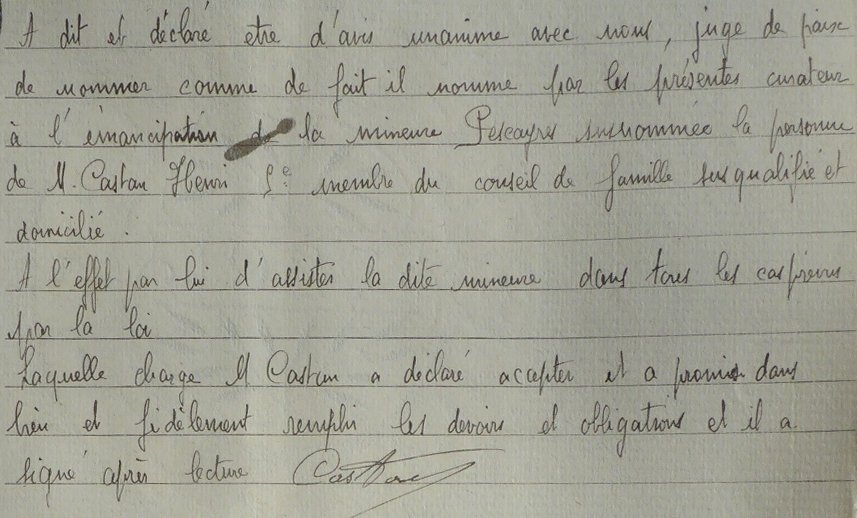 A dit et déclaré etre d'avis unanime avec nous, juge de paix
de nommer comme de fait il nomme par les présentes curateur
à l'émancipation de la mineure Pescayre susnommée la personne
de M. Castan Henri 5e membre du conseil de famille sus qualifié et
domicilié.
A l'effet par lui d'assister la dite mineure dans tous les cas prévus
par la loi
Laquelle charge M Castan a déclaré accepter et a promis dans
bien et fidèlement remplir les devoirs et obligations et il a
signé après lecture Castan